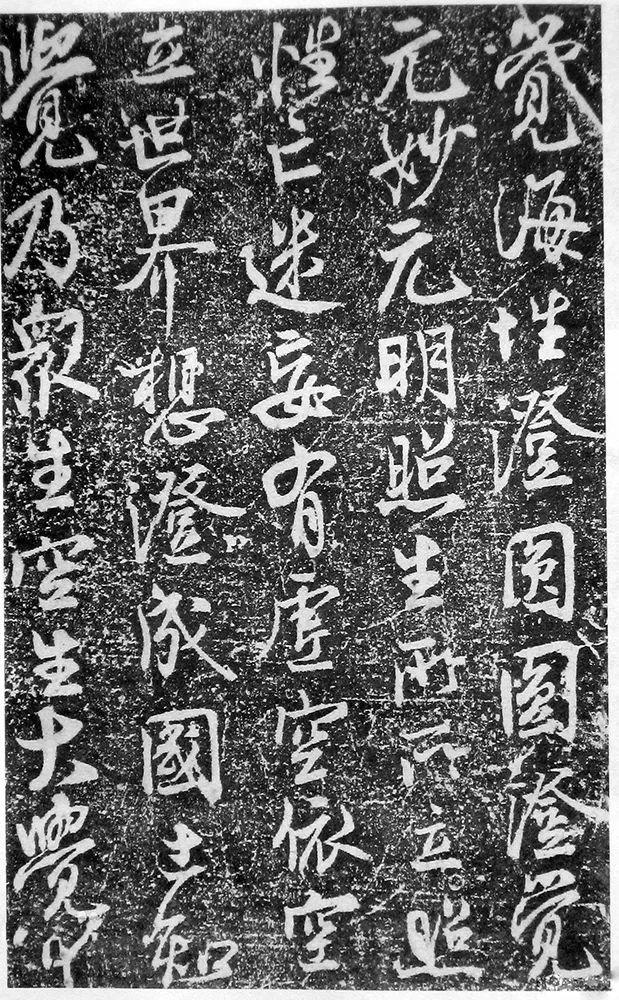 覺海性澄圓圓澄覺
元妙元明照生所所立照
性亡迷妄有虛空依空
立世界想澄成國土知
覺乃眾生空生大覺中